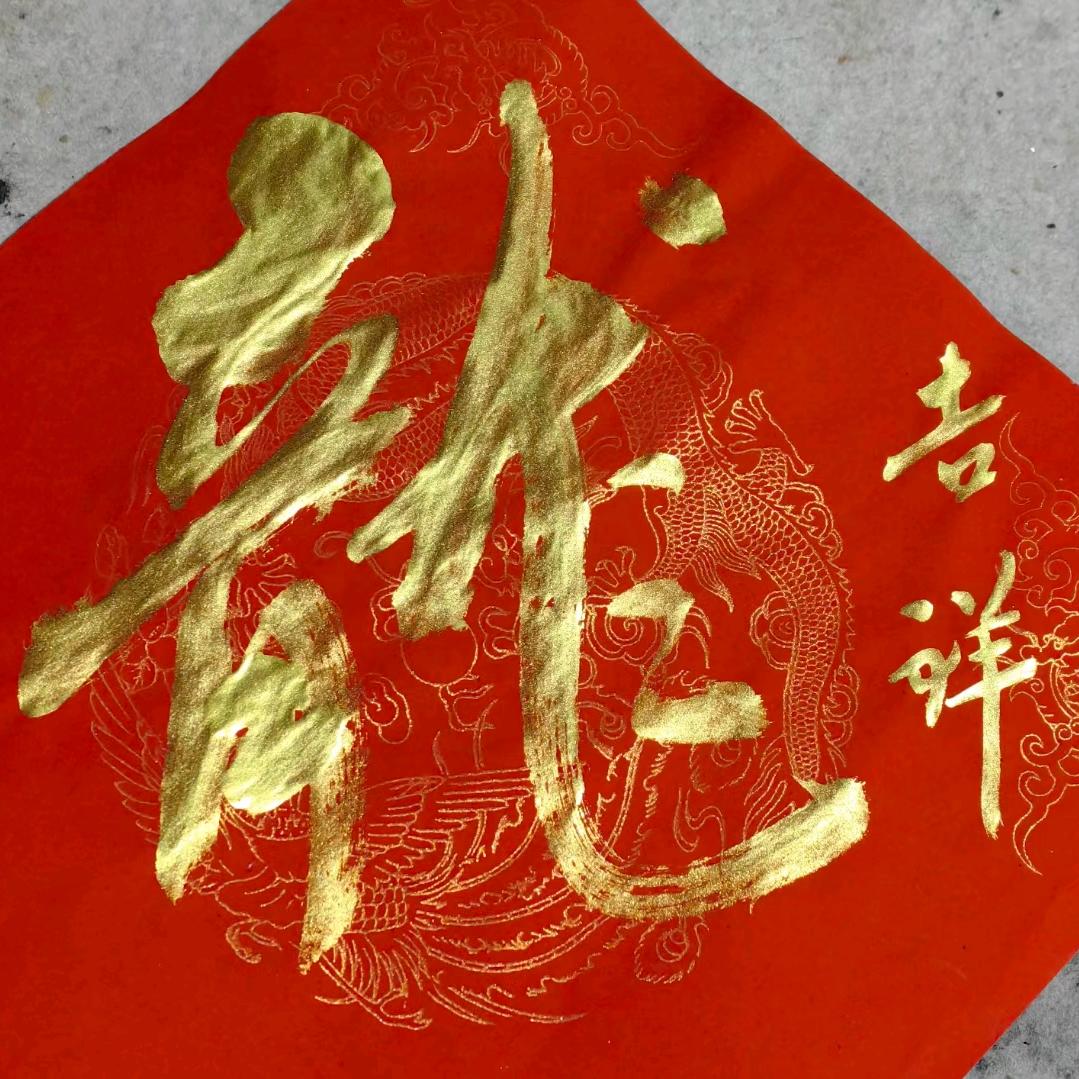 龍
吉祥